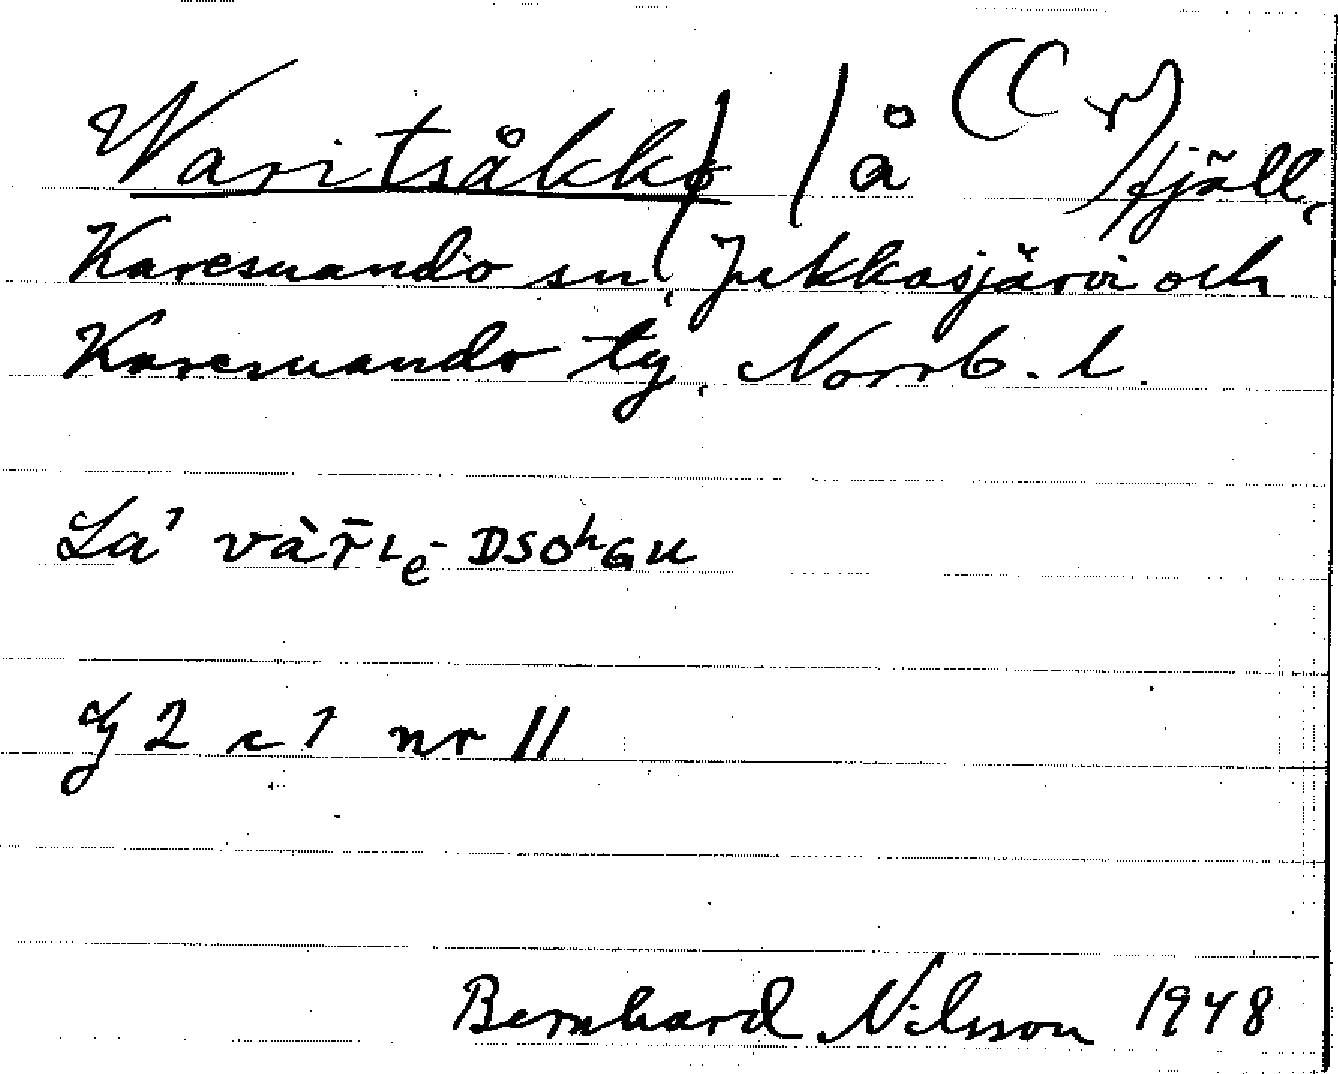 Waritsåkko / å ((r) fjäll,
Karesuando sn, Jukkasjärvi och
Karesuando tg, Norrb. l.
La'
G 2 c 1 nr 11
Bernhard Nilsson 1948